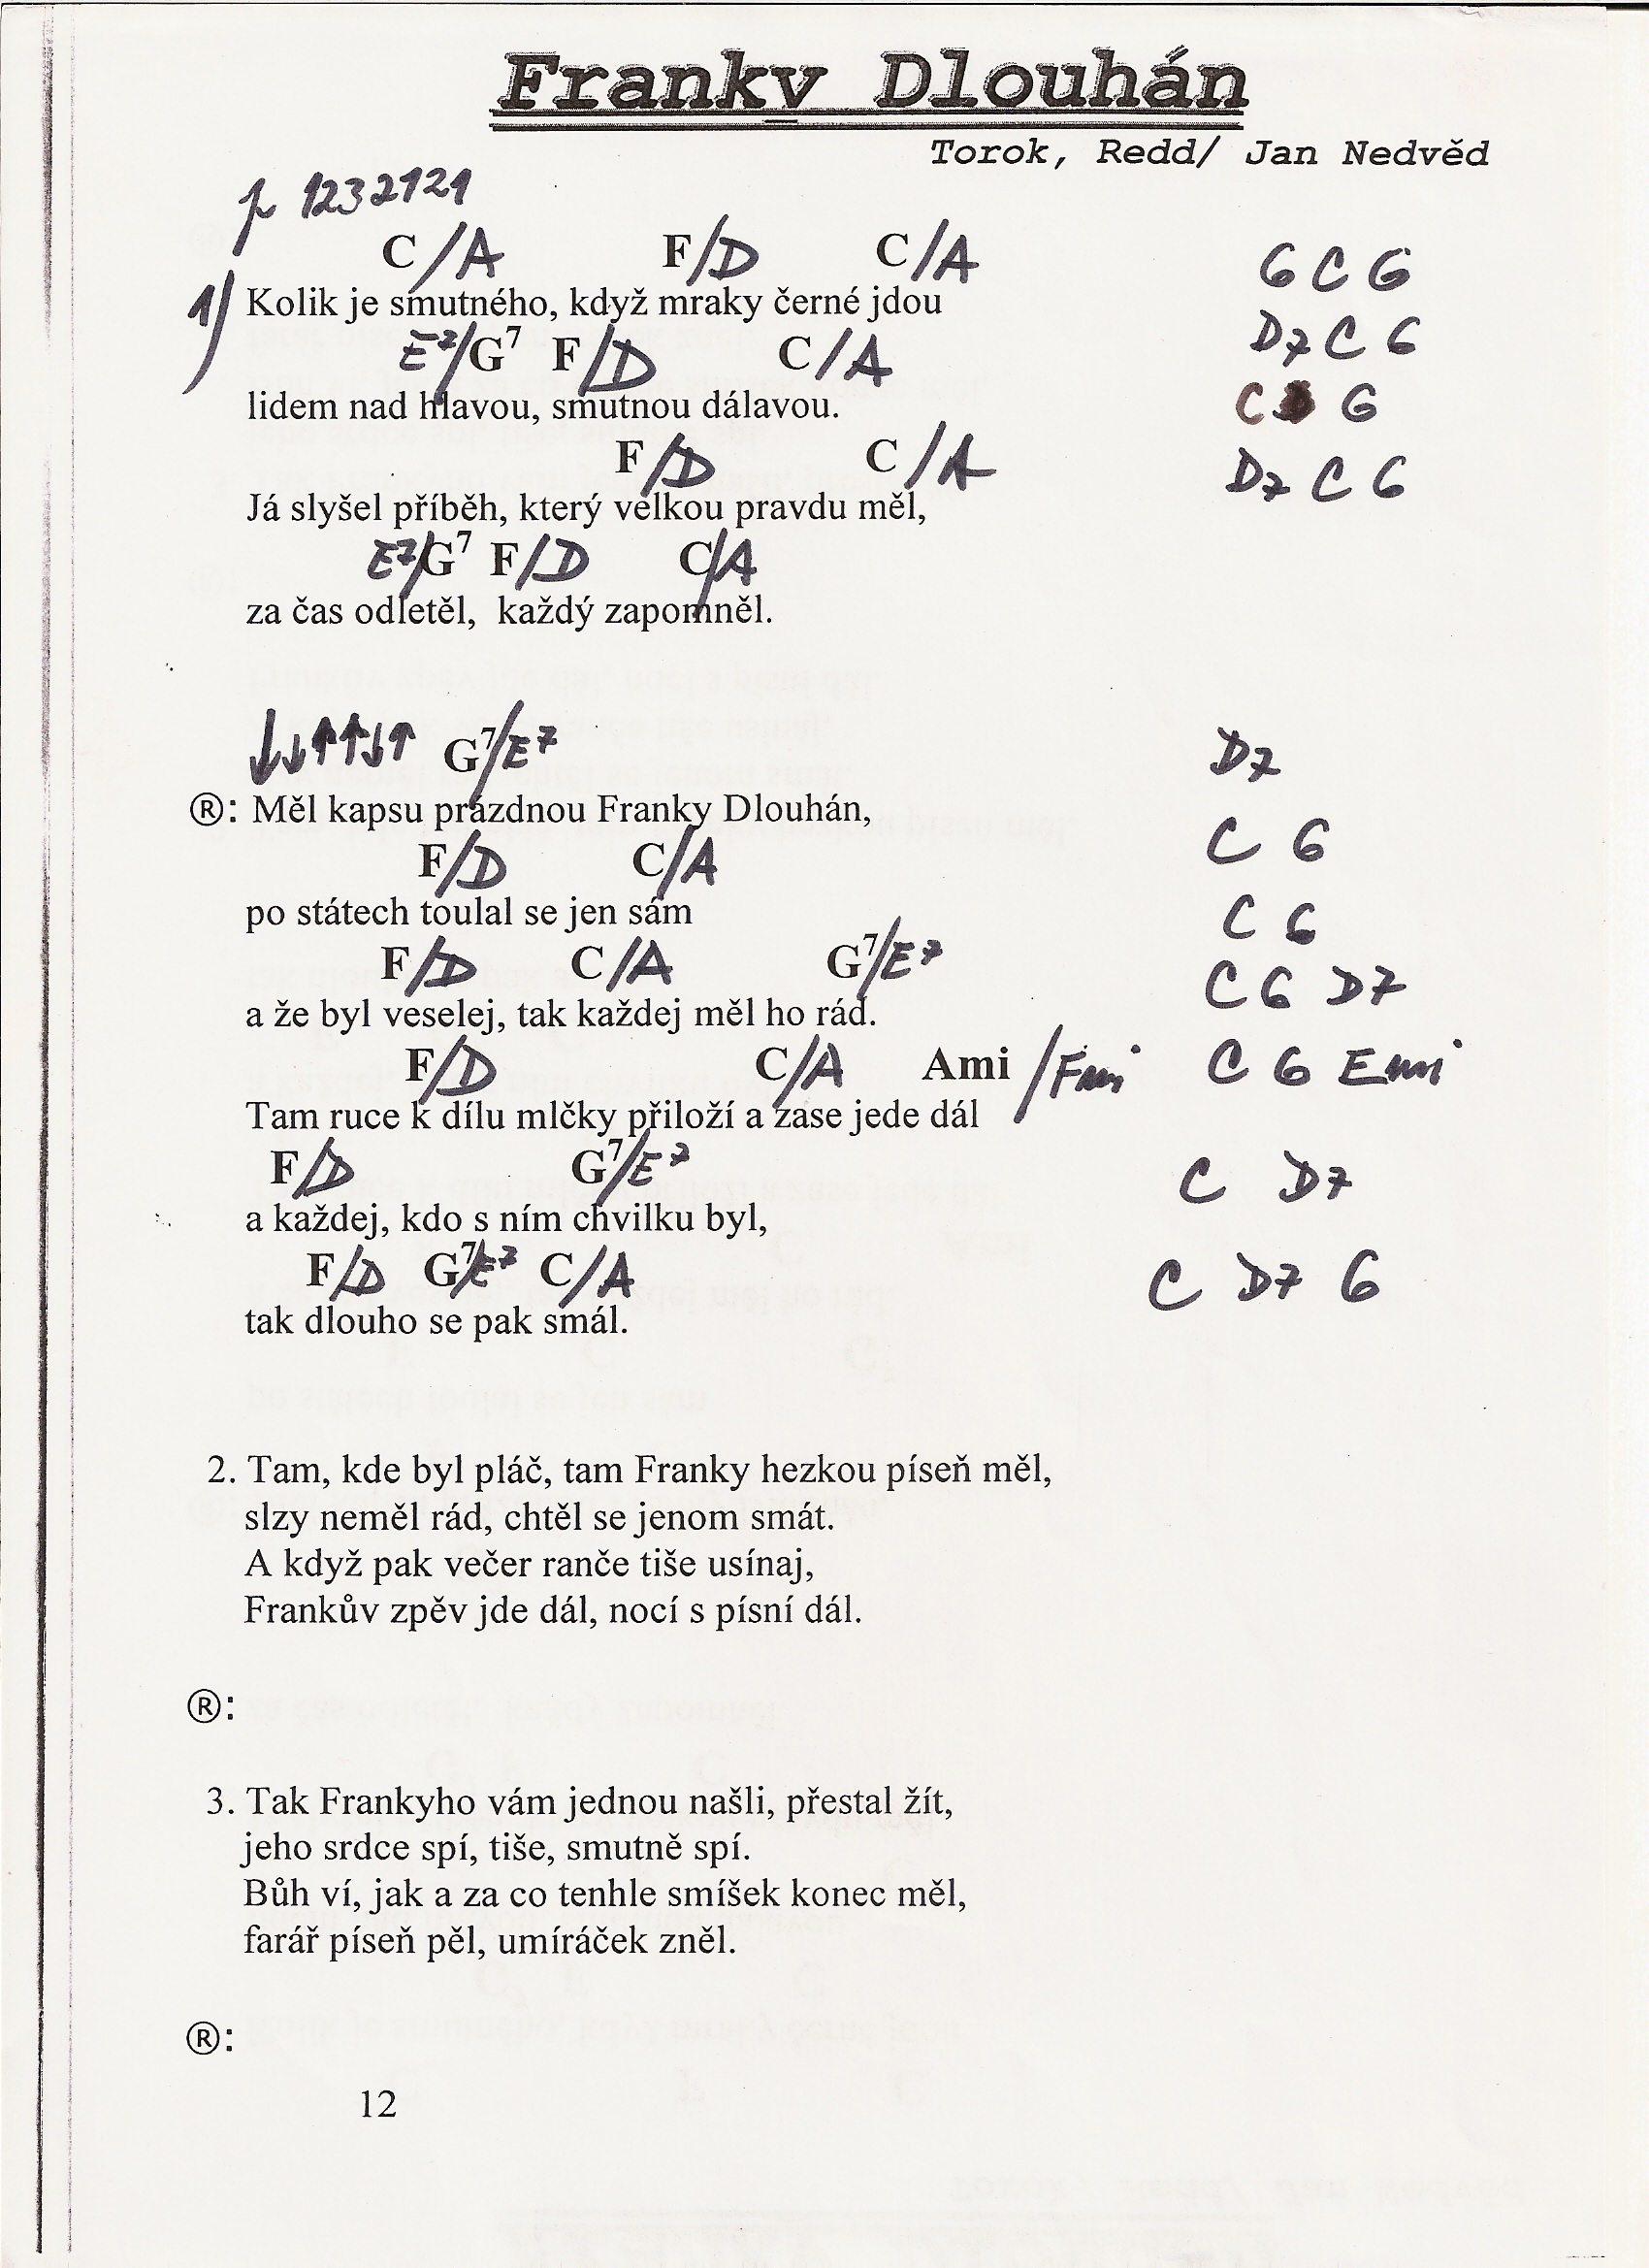 Franky Dlouhán
Torok, Redd/ Jan Nedvěd
p 1232121
C/A F/D C/A G C G
1) Kolik je smutného, když mraky černé jdou
E7/G7 F/D C/A D7 C G
lidem nad hlavou, smutnou dálavou. C G
F/D C/A D7 C G
Já slyšel příběh, který velkou pravdu měl,
E7/G7 F/D C/A
za čas odletěl, každý zapomněl.
↓↓↑↑↓↑ G7/E7 D7
®: Měl kapsu prázdnou Franky Dlouhán,
F/D C/A C G
po státech toulal se jen sám C G
F/D C/A G7/E7 C G D7
a že byl veselej, tak každej měl ho rád.
F/D C/A Ami /Fmi C G Emi
Tam ruce k dílu mlčky přiloží a zase jede dál
F/D G7/E7 C D7
a každej, kdo s ním chvilku byl,
F/D G7/E7 C/A C D7 G
tak dlouho se pak smál.
2. Tam, kde byl pláč, tam Franky hezkou píseň měl,
slzy neměl rád, chtěl se jenom smát.
A když pak večer ranče tiše usínaj,
Frankův zpěv jde dál, nocí s písní dál.
®:
3. Tak Frankyho vám jednou našli, přestal žít,
jeho srdce spí, tiše, smutně spí.
Bůh ví, jak a za co tenhle smíšek konec měl,
farář píseň pěl, umíráček zněl.
®:
12